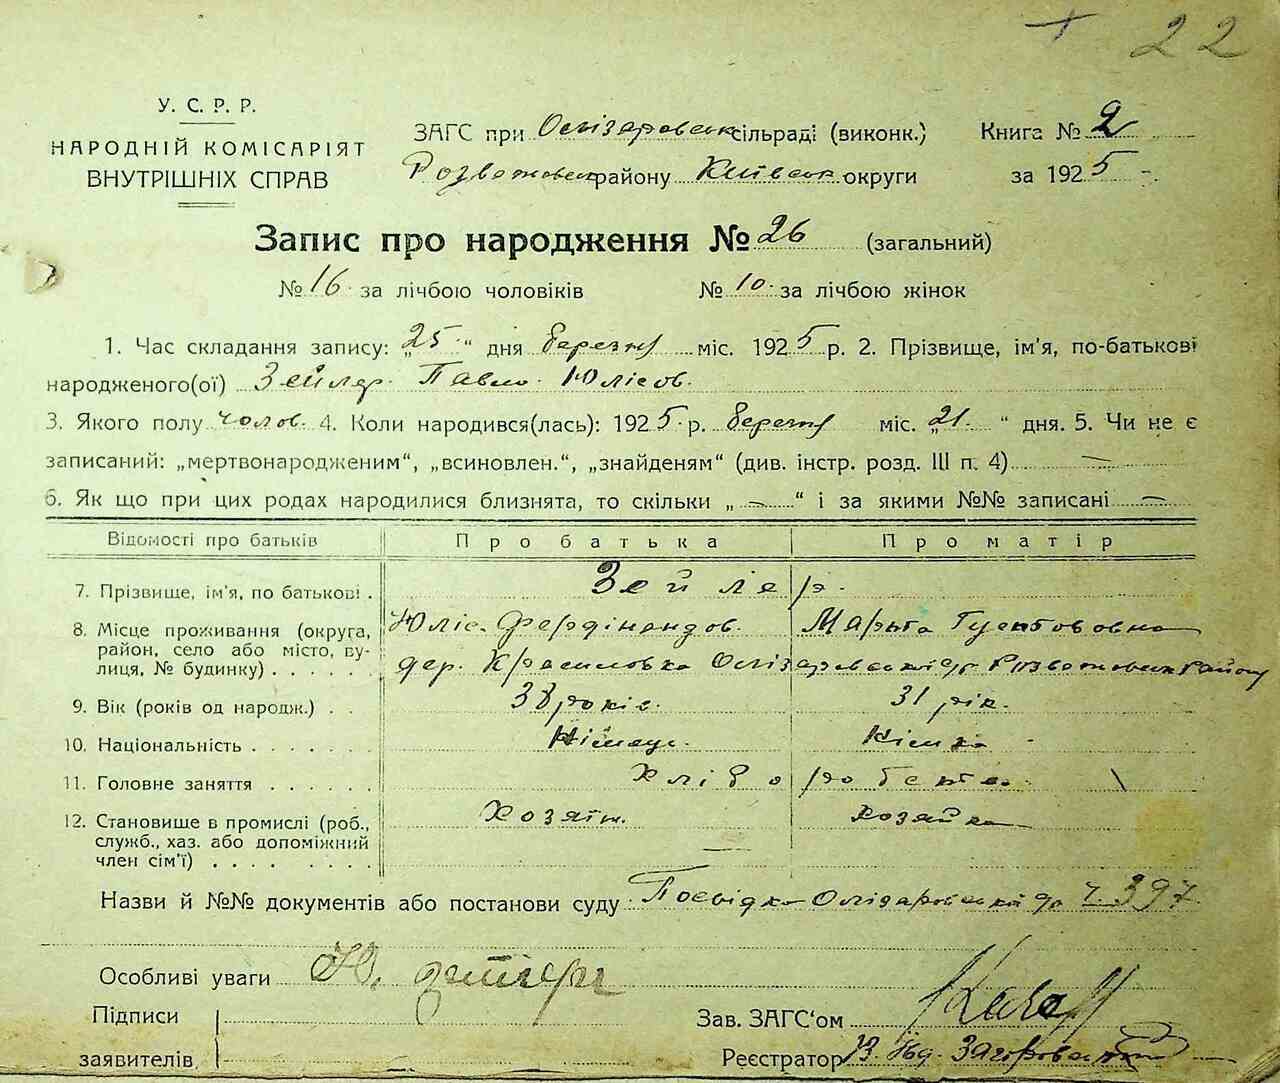 22
У. С. Р. Р.
НАРОДНІЙ КОМІСАРІЯТ
ВНУТРІШНІХ СПРАВ
ЗАГС при Олізаровськ сільраді (виконк.) Книга № 2
Розважевськ району Київськ округи за 1925
Запис про народження № 26 (загальний)
№ 16 за лічбою чоловіків № 10 за лічбою жінок
1. Час складання запису: „25“ дня березня міс. 1925 р. 2. Прізвище, ім'я, по-батькові
народженого(ої) Зейлер Павло Юлісов.
3. Якого полу чолов. 4. Коли народився(лась): 1925 р. березня міс. „21“ дня. 5. Чи не є
записаний: „мертвонародженим“, „всиновлен.“, „знайденям“ (див. інстр. розд. III п. 4) —
6. Як що при цих родах народилися близнята, то скільки „—“ і за якими №№ записані —
Відомості про батьків Про батька Про матір
7. Прізвище, ім'я, по батькові . Зейлер.
8. Місце проживання (округа, Юліс. Фердінандов. Марьта Густововна
район, село або місто, ву- дер. Красиловка Олізаровської с/р Розважевськ району
лиця, № будинку) . . . . . .
9. Вік (років од народж.) . . 38 років. 31 рік.
10. Національність . . . . . . . Німець. Німка
11. Головне заняття . . . . . . Хліборобство
12. Становише в промислі (роб., Хозяїн. хозяйка
служб., хаз. або допоміжний
член сім'ї) . . . . . . . .
Назви й №№ документів або постанови суду Посвідка Олізаровської с/р ч. 397
Особливі уваги Ю.
Підписи
заявителів
Зав. ЗАГС'ом
Реєстратор